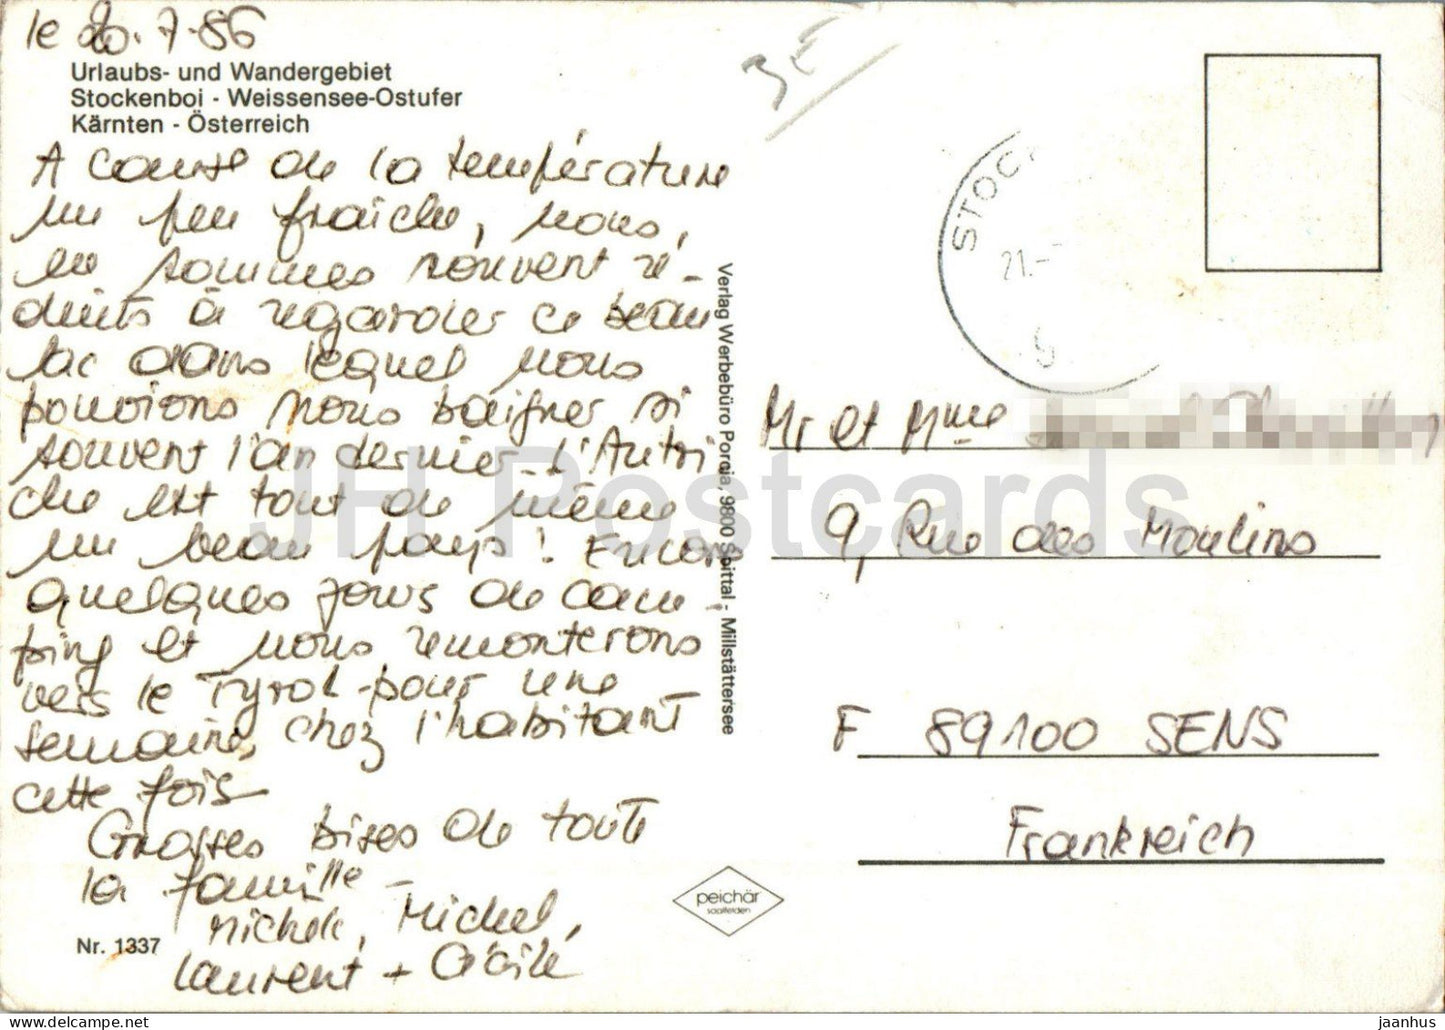 le 20.7.86
Urlaubs- und Wandergebiet
Stockenboi - Weissensee-Ostufer
Kärnten - Österreich
A cause de la température
un peu fraîche, nous,
en sommes souvent ré-
duits à regarder ce beau
lac dans lequel nous
pouvions nous baigner si
souvent l'an dernier. L'Autri
che est tout de même
un beau pays! Encore
quelques jours de cam-
ping et nous remonterons
vers le Tyrol pour une
semaine, chez l'habitant
cette fois
Grosses bises de toute
la famille -
Michele, Michel,
Laurent + Cécile
Nr. 1337
Verlag Werbebüro Porcia, 9800 Spittal - Millstättersee
peichär
saalfelden
3E
STOC
21.-
9
Mr et Mme
9, Rue des Moulins
F 89100 SENS
Frankreich
JH Postcards
jaanhus @ www.delcampe.net